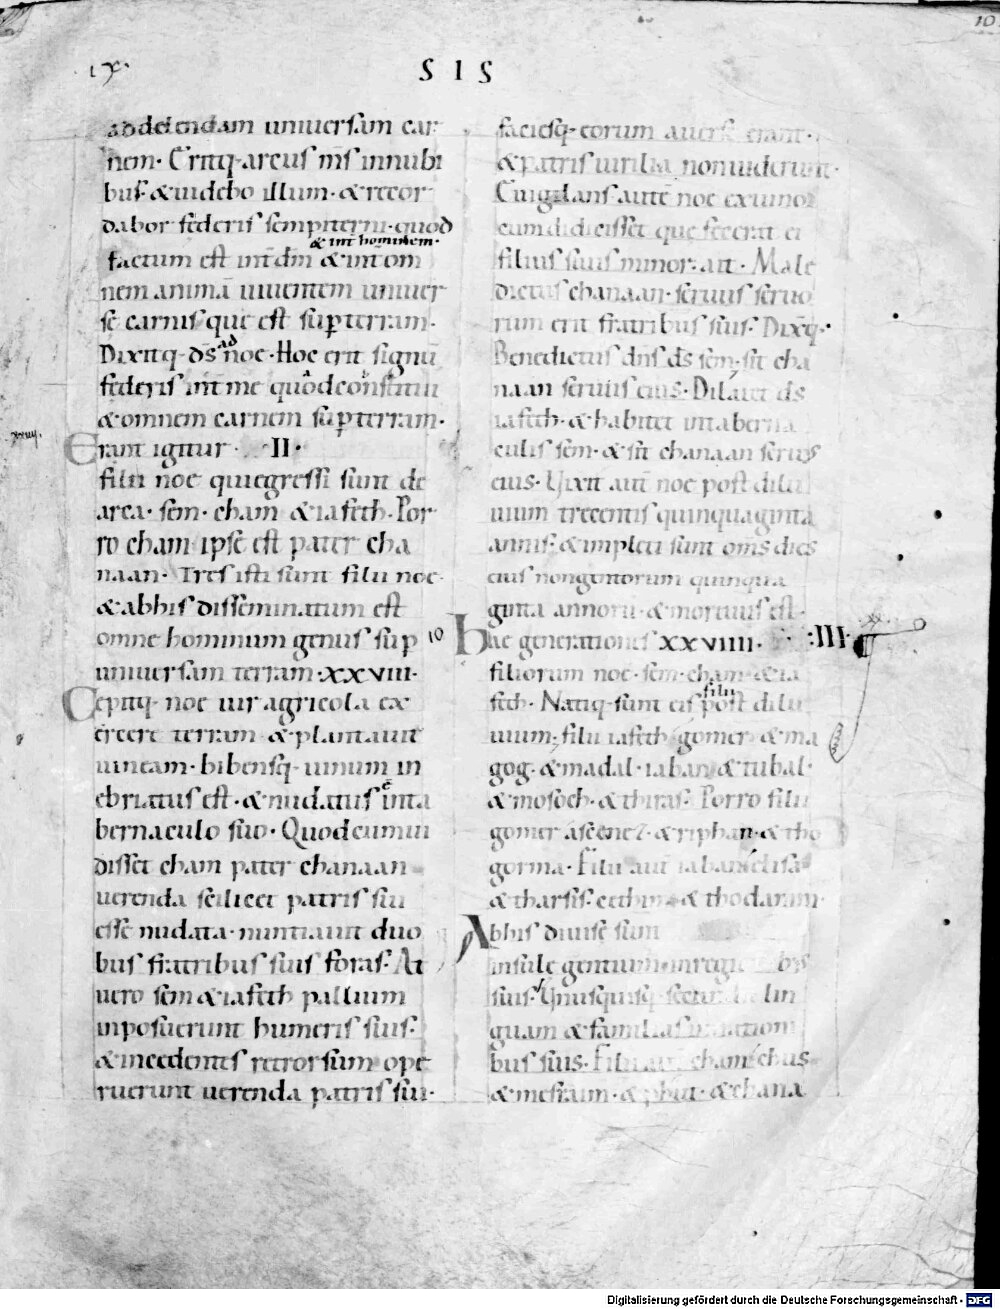 10
ix.
SIS
addelendam uniuersam car
nem. Eritq; arcus m̄s innubi
bus. & uidebo illum. & recor
dabor federis sempiterni. quod
& int hominem.
factum est int dm̄ & int om
nem animā uiuentem uniuer
se carnis que est sup terram.
Dixitq; ds̄ ad noe. Hoc erit signū
federis int me quod constitui
& omnem carnem sup terram.
Erant igitur II.
filii noe qui egressi sunt de
arca. sem. cham & iafeth. Por
ro cham ipse est pater cha
naan. Tres isti sunt filii noe
& abhis disseminatum est
omne hominum genus sup
uniuersam terram. XXVIII.
Cepitq; noe uir agricola ex
ercere terram & plantauit
uineam. bibensq; uinum in
ebriatus est. & nudatus in ta
bernaculo suo. Quod cum ui
disset cham pater chanaan
uerenda scilicet patris sui
esse nudata. nuntiauit duo
bus fratribus suis foras. At
uero sem & iafeth pallium
inposuerunt humeris suis.
& incedentes retrorsum ope
ruerunt uerenda patris sui.
faciesq; eorum auerse erant.
& patris uirilia non uiderunt.
Euigilans autē noe ex uino
cum didicisset que fecerat ei
filius suus minor. ait. Male
dictus chanaan. seruus seruo
rum erit fratribus suis. Dixitq;.
Benedictus dns̄ ds̄ sem. sit cha
naan seruus eius. Dilatet ds̄
iafeth. & habitet in taberna
culis sem. & sit chanaan seruus
eius. Uixit aut̄ noe post dilu
uium trecentis quinquaginta
annis. & impleti sunt oms̄ dies
eius nongentorum quinqua
ginta annorū. & mortuus est.
10 Hae generationes XXVIIII. :III.
filiorum noe. sem. cham & ia
feth. Natiq; sunt eis filii post dilu
uium. filii iafeth gomer. & ma
gog. & madal. iaban & tubal.
& mosoch. & thiras. Porro filii
gomer ascenez. & riphan. & tho
gorma. Filii aut̄ iaban elisa
& tharsis. cethim & thodanim.
Abhis diuise sunt
insule gentium in regionibus
suis. Unusquisq; secundū lin
guam & familias in nationi
bus suis. Filii aut̄ cham chus
& mesraim. & phut. & chana
Digitalisierung gefördert durch die Deutsche Forschungsgemeinschaft - DFG